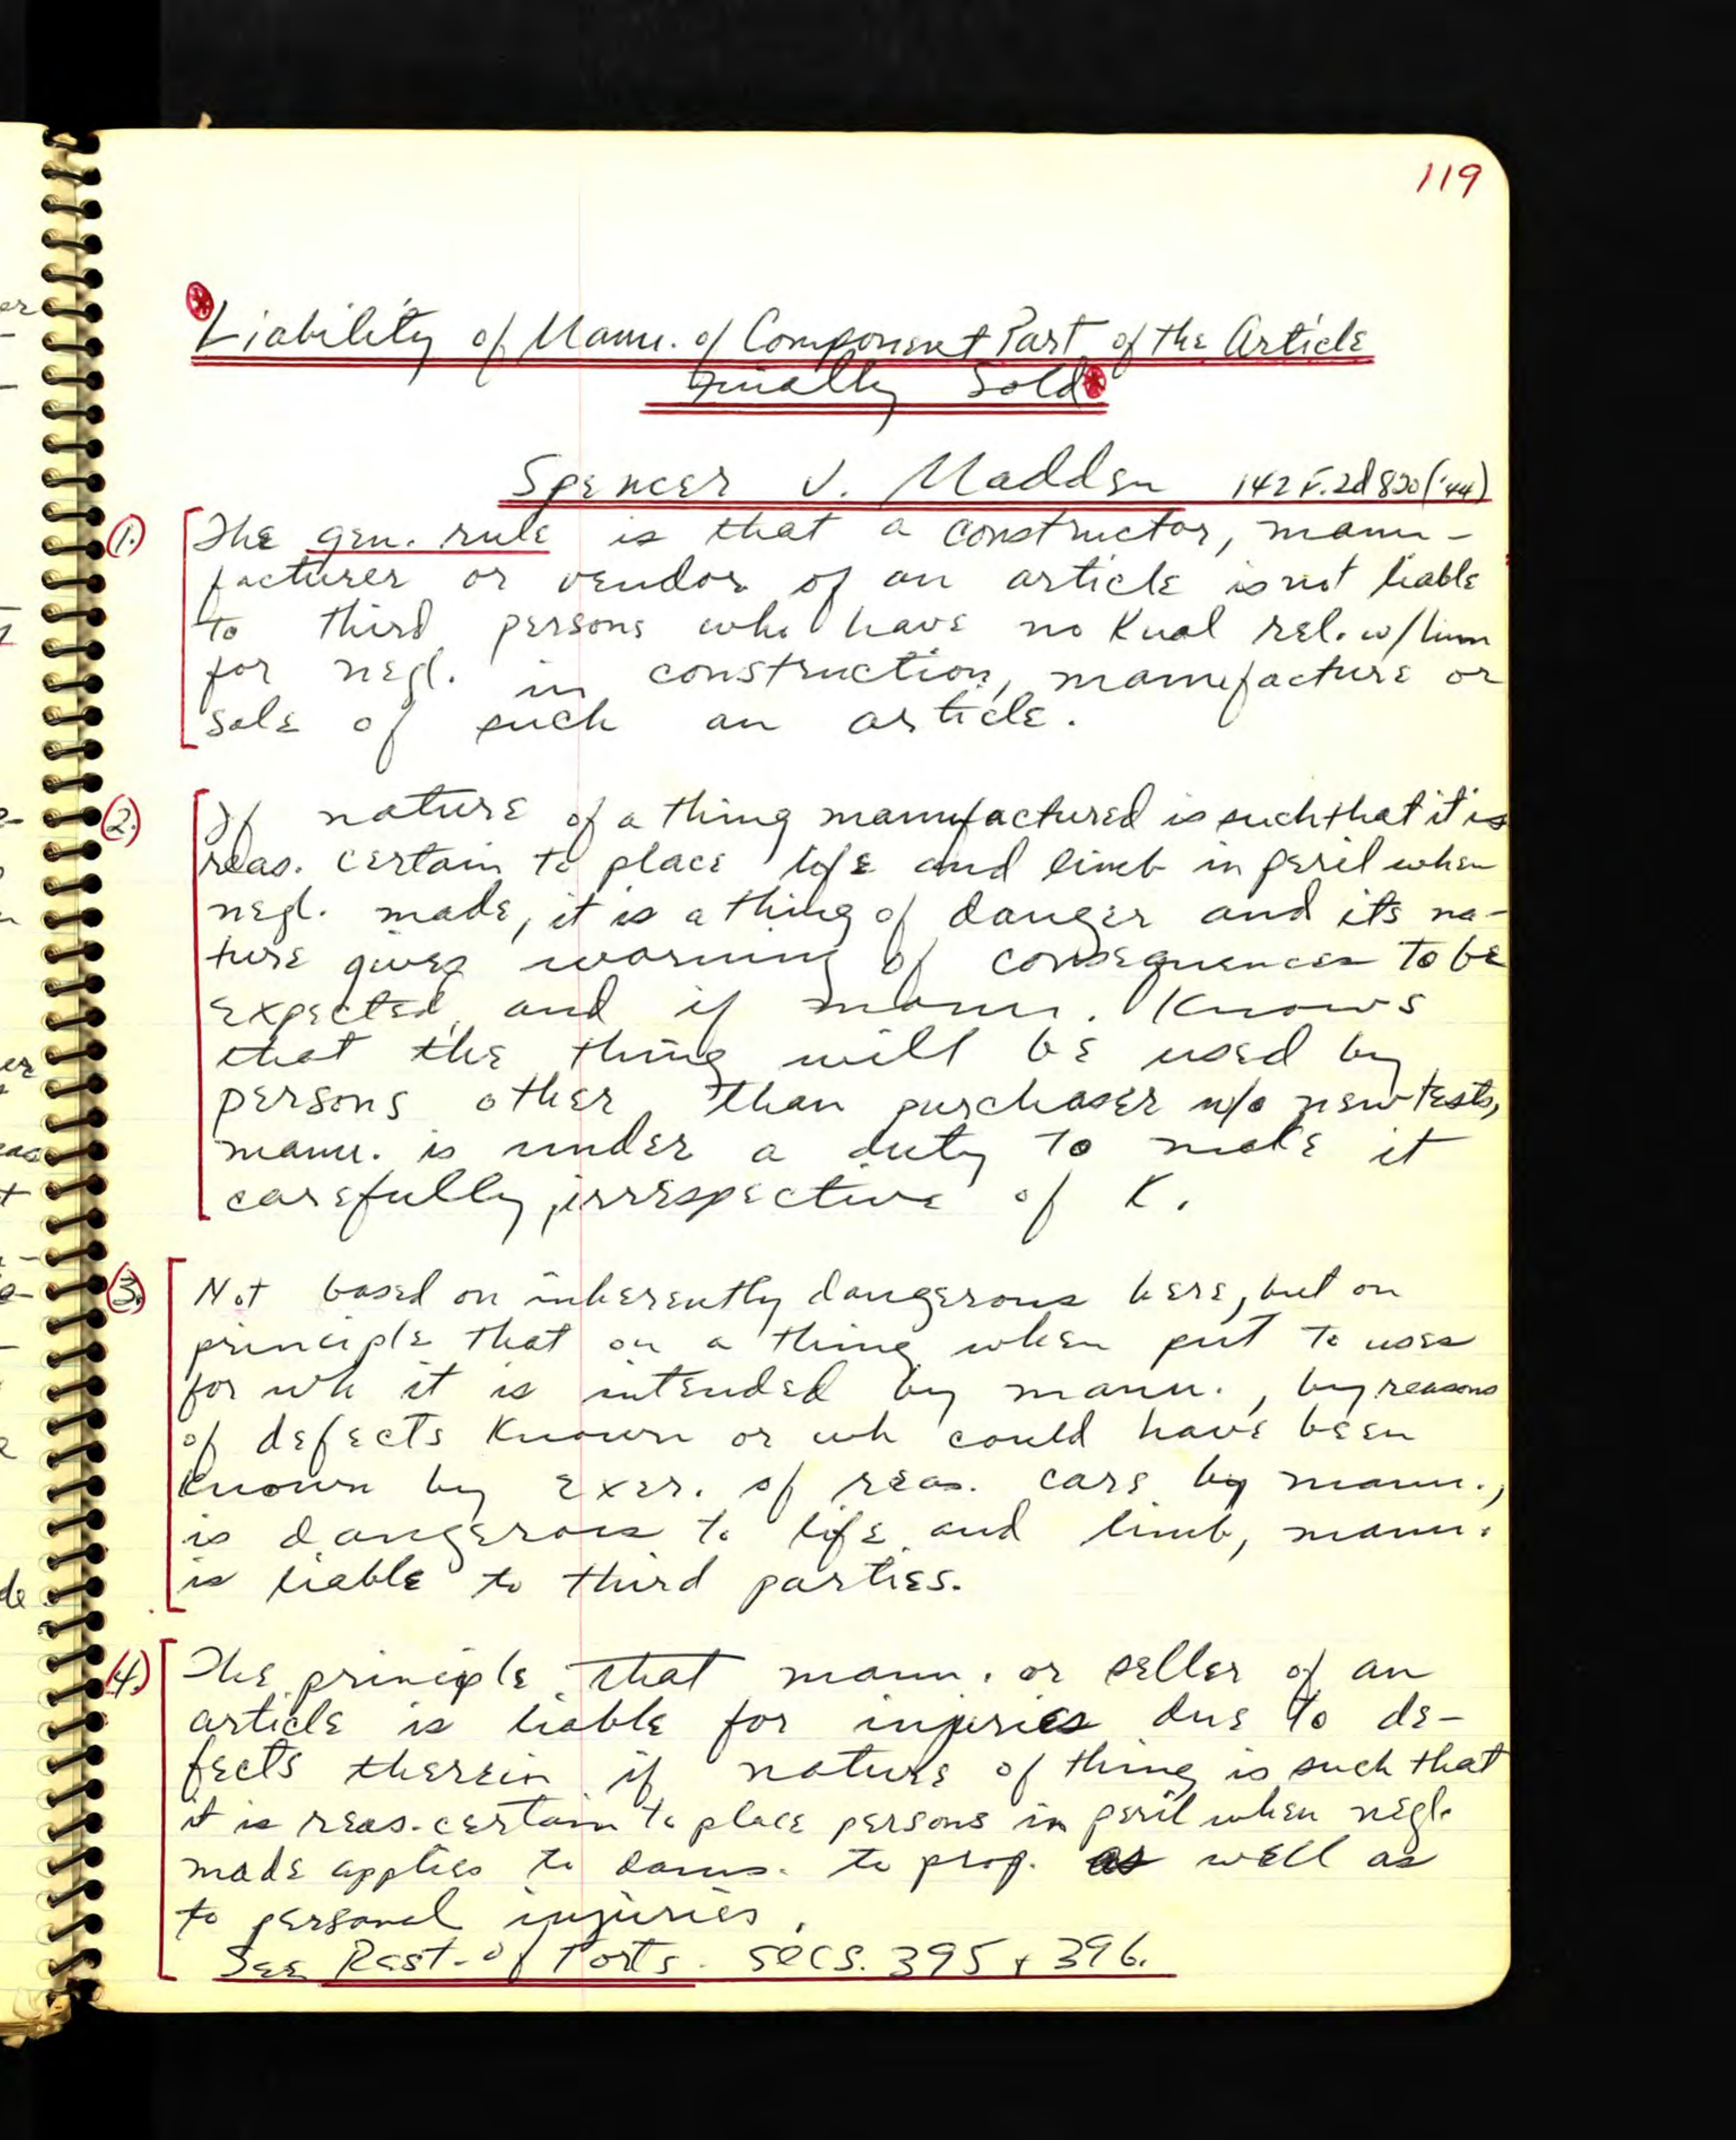 119
Liability of Manu. of Component Part of the Article
Finally Sold
Spencer v. Madden 142 F.2d 820 ('44)
1. The gen. rule is that a constructor, manu-
facturer or vendor of an article is not liable
to third persons who have no Kual rel. w/him
for negl. in construction, manufacture or
sale of such an article.
2. If nature of a thing manufactured is such that it is
reas. certain to place life and limb in peril when
negl. made, it is a thing of danger and its na-
ture gives warning of consequences to be
expected, and if manu. knows
that the thing will be used by
persons other than purchaser w/o new tests,
manu. is under a duty to make it
carefully, irrespective of K.
3. Not based on inherently dangerous here, but on
principle that on a thing when put to uses
for wh it is intended by manu., by reasons
of defects known or wh could have been
known by exer. of reas. care by manu.,
is dangerous to life and limb, manu.
is liable to third parties.
4. The principle that manu. or seller of an
article is liable for injuries due to de-
fects therein if nature of thing is such that
it is reas. certain to place persons in peril when negl.
made applies to dams. to prop. as well as
to personal injuries.
See Rest. of Torts. secs. 395 + 396.